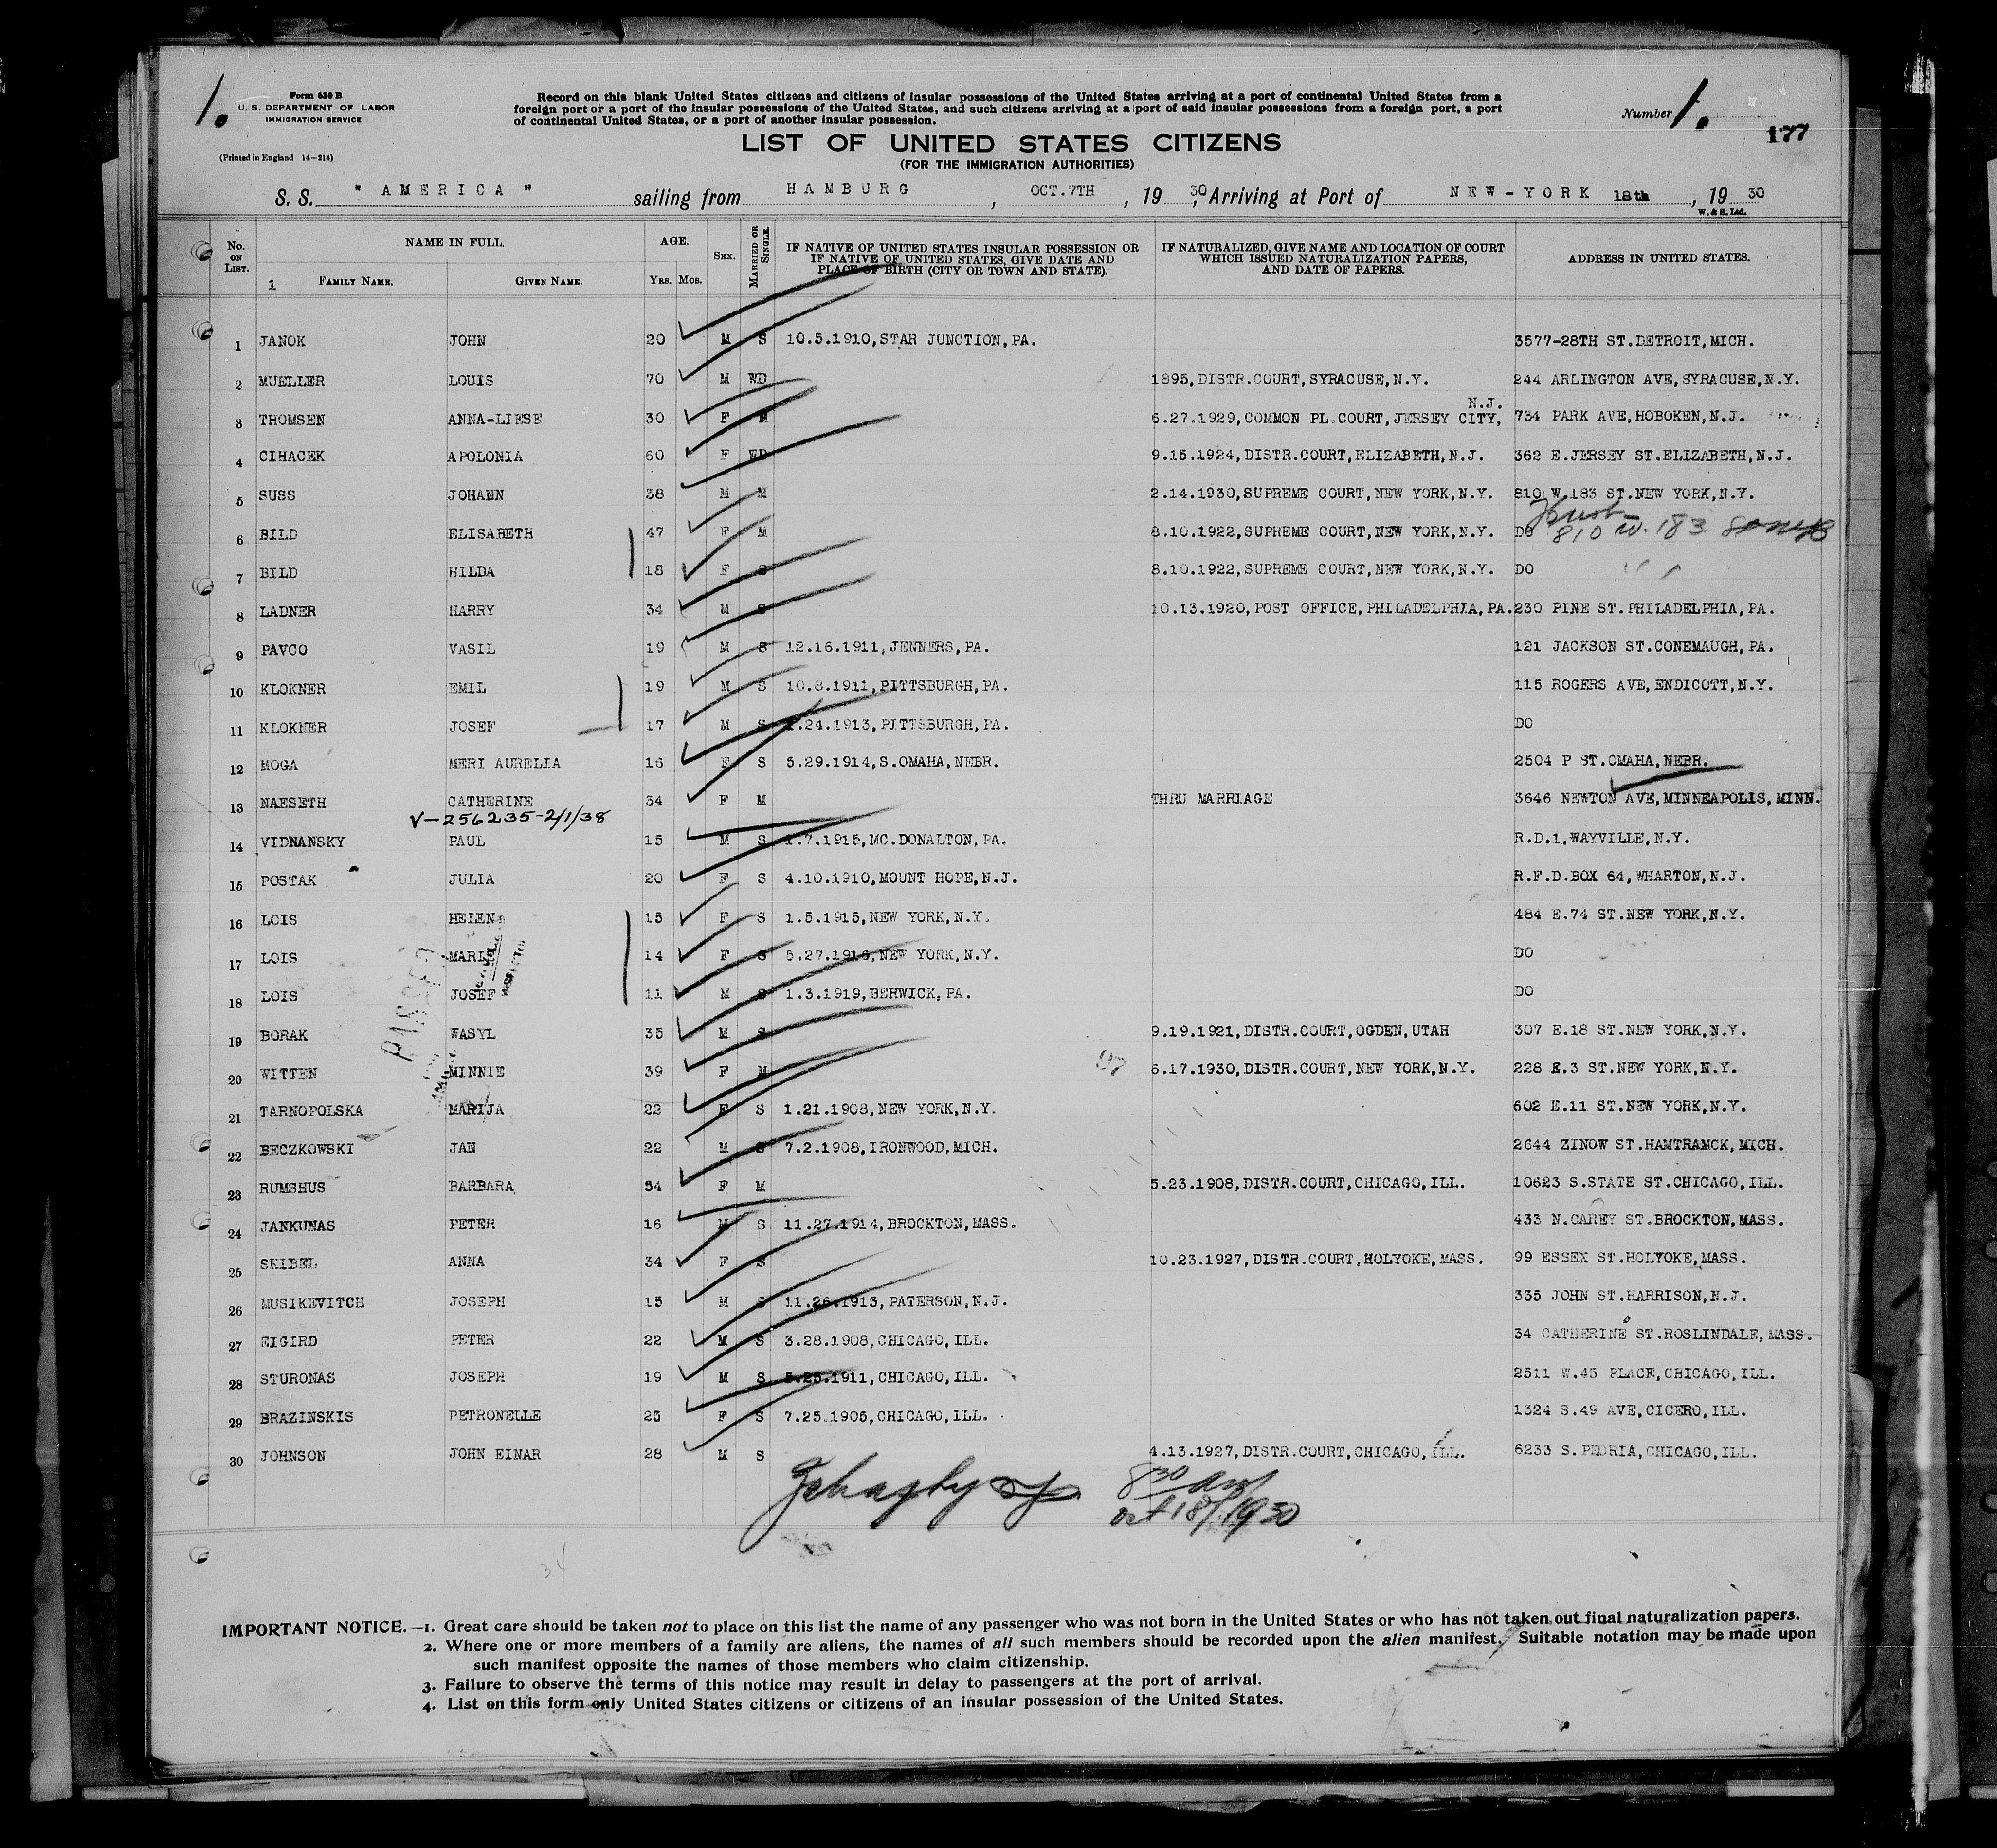 1.
Form 630 B
U. S. DEPARTMENT OF LABOR
IMMIGRATION SERVICE
(Printed in England 14-214)
Record on this blank United States citizens and citizens of insular possessions of the United States arriving at a port of continental United States from a
foreign port or a port of the insular possessions of the United States, and such citizens arriving at a port of said insular possessions from a foreign port, a port
of continental United States, or a port of another insular possession.
Number 1.
177
LIST OF UNITED STATES CITIZENS
(FOR THE IMMIGRATION AUTHORITIES)
S. S. " AMERICA " sailing from HAMBURG, OCT.7TH, 1930, Arriving at Port of NEW-YORK 18th, 1930
W. & S. Ltd.
No. ON LIST. NAME IN FULL. AGE. SEX. MARRIED OR SINGLE. IF NATIVE OF UNITED STATES INSULAR POSSESSION OR IF NATIVE OF UNITED STATES, GIVE DATE AND PLACE OF BIRTH (CITY OR TOWN AND STATE). IF NATURALIZED, GIVE NAME AND LOCATION OF COURT WHICH ISSUED NATURALIZATION PAPERS, AND DATE OF PAPERS. ADDRESS IN UNITED STATES.
1 FAMILY NAME. GIVEN NAME. YRS. MOS.
1 JANOK JOHN 20 M S 10.5.1910,STAR JUNCTION,PA. 3577-28TH ST.DETROIT,MICH.
2 MUELLER LOUIS 70 M WD 1895,DISTR.COURT,SYRACUSE,N.Y. 244 ARLINGTON AVE,SYRACUSE,N.Y.
N.J.
3 THOMSEN ANNA-LIESE 30 F M 6.27.1929,COMMON PL.COURT,JERSEY CITY, 734 PARK AVE,HOBOKEN,N.J.
4 CIHACEK APOLONIA 60 F WD 9.15.1924,DISTR.COURT,ELIZABETH,N.J. 362 E.JERSEY ST.ELIZABETH,N.J.
5 SUSS JOHANN 38 M M 2.14.1930,SUPREME COURT,NEW YORK,N.Y. 810 W.183 ST.NEW YORK,N.Y.
6 BILD ELISABETH 47 F M 8.10.1922,SUPREME COURT,NEW YORK,N.Y. DO 810 W. 183
7 BILD HILDA 18 F S 8.10.1922,SUPREME COURT,NEW YORK,N.Y. DO
8 LADNER HARRY 34 M S 10.13.1920,POST OFFICE,PHILADELPHIA,PA. 230 PINE ST.PHILADELPHIA,PA.
9 PAVCO VASIL 19 M S 12.16.1911,JENNERS,PA. 121 JACKSON ST.CONEMAUGH,PA.
10 KLOKNER EMIL 19 M S 10.8.1911,PITTSBURGH,PA. 115 ROGERS AVE,ENDICOTT,N.Y.
11 KLOKNER JOSEF 17 M S 1.24.1913,PITTSBURGH,PA. DO
12 MOGA MERI AURELIA 16 F S 5.29.1914,S.OMAHA,NEBR. 2504 P ST.OMAHA,NEBR.
13 NAESETH CATHERINE 34 F M THRU MARRIAGE 3646 NEWTON AVE,MINNEAPOLIS,MINN.
V-256235-2/1/38
14 VIDNANSKY PAUL 15 M S 1.7.1915,MC.DONALTON,PA. R.D.1,WAYVILLE,N.Y.
15 POSTAK JULIA 20 F S 4.10.1910,MOUNT HOPE,N.J. R.F.D.BOX 64,WHARTON,N.J.
16 LOIS HELEN 15 F S 1.5.1915,NEW YORK,N.Y. 484 E.74 ST.NEW YORK,N.Y.
17 LOIS MARIE 14 F S 5.27.1916,NEW YORK,N.Y. DO
18 LOIS JOSEF 11 M S 1.3.1919,BERWICK,PA. DO
PASSED
19 BORAK WASYL 35 M S 9.19.1921,DISTR.COURT,OGDEN,UTAH 307 E.18 ST.NEW YORK,N.Y.
20 WITTEN MINNIE 39 F M 6.17.1930,DISTR.COURT,NEW YORK,N.Y. 228 E.3 ST.NEW YORK,N.Y.
21 TARNOPOLSKA MARIJA 22 F S 1.21.1908,NEW YORK,N.Y. 602 E.11 ST.NEW YORK,N.Y.
22 BECZKOWSKI JAN 22 M S 7.2.1908,IRONWOOD,MICH. 2644 ZINOW ST.HAMTRAMCK,MICH.
23 RUMSHUS BARBARA 54 F M 5.23.1908,DISTR.COURT,CHICAGO,ILL. 10623 S.STATE ST.CHICAGO,ILL.
24 JANKUNAS PETER 16 M S 11.27.1914,BROCKTON,MASS. 433 N.CAREY ST.BROCKTON,MASS.
25 SKIBEL ANNA 34 F S 10.23.1927,DISTR.COURT,HOLYOKE,MASS. 99 ESSEX ST.HOLYOKE,MASS.
26 MUSIKEVITCH JOSEPH 15 M S 11.26.1915,PATERSON,N.J. 335 JOHN ST.HARRISON,N.J.
27 EIGIRD PETER 22 M S 3.28.1908,CHICAGO,ILL. 34 CATHERINE ST.ROSLINDALE,MASS.
28 STURONAS JOSEPH 19 M S 5.25.1911,CHICAGO,ILL. 2511 W.45 PLACE,CHICAGO,ILL.
29 BRAZINSKIS PETRONELLE 25 F S 7.25.1905,CHICAGO,ILL. 1324 S.49 AVE,CICERO,ILL.
30 JOHNSON JOHN EINAR 28 M S 4.13.1927,DISTR.COURT,CHICAGO,ILL. 6233 S.PEORIA,CHICAGO,ILL.
8 30 AM
Oct 18/1930
34
IMPORTANT NOTICE.—1. Great care should be taken not to place on this list the name of any passenger who was not born in the United States or who has not taken out final naturalization papers.
2. Where one or more members of a family are aliens, the names of all such members should be recorded upon the alien manifest. Suitable notation may be made upon
such manifest opposite the names of those members who claim citizenship.
3. Failure to observe the terms of this notice may result in delay to passengers at the port of arrival.
4. List on this form only United States citizens or citizens of an insular possession of the United States.